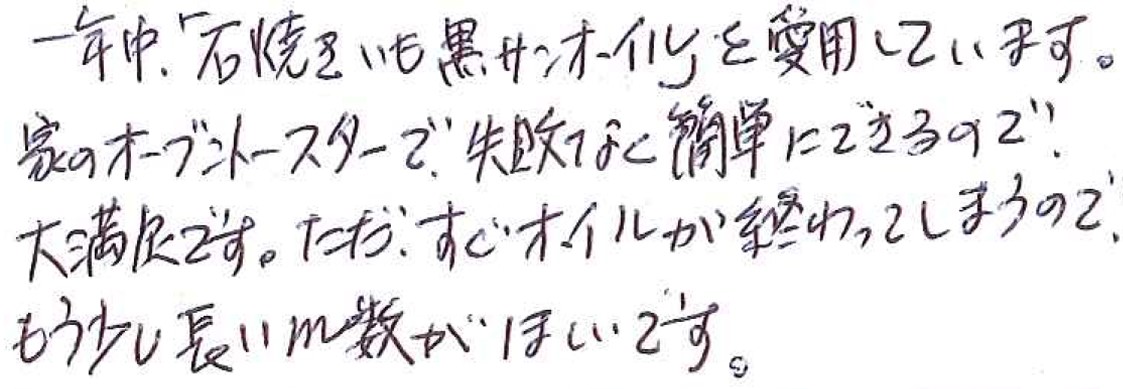 一年中、「石焼きいも黒サンホイル」を愛用しています。
家のオーブントースターで、失敗なく簡単にできるので、
大満足です。ただ、すぐホイルが終わってしまうので、
もう少し長いm数がほしいです。